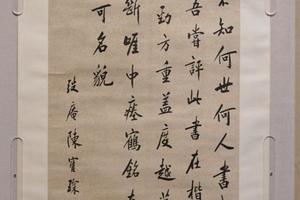 不知何世何人書
吾嘗評此書在楷
勁方重蓋度越
斷崕中瘞鶴銘
可名貌
弢庵陳寶琛